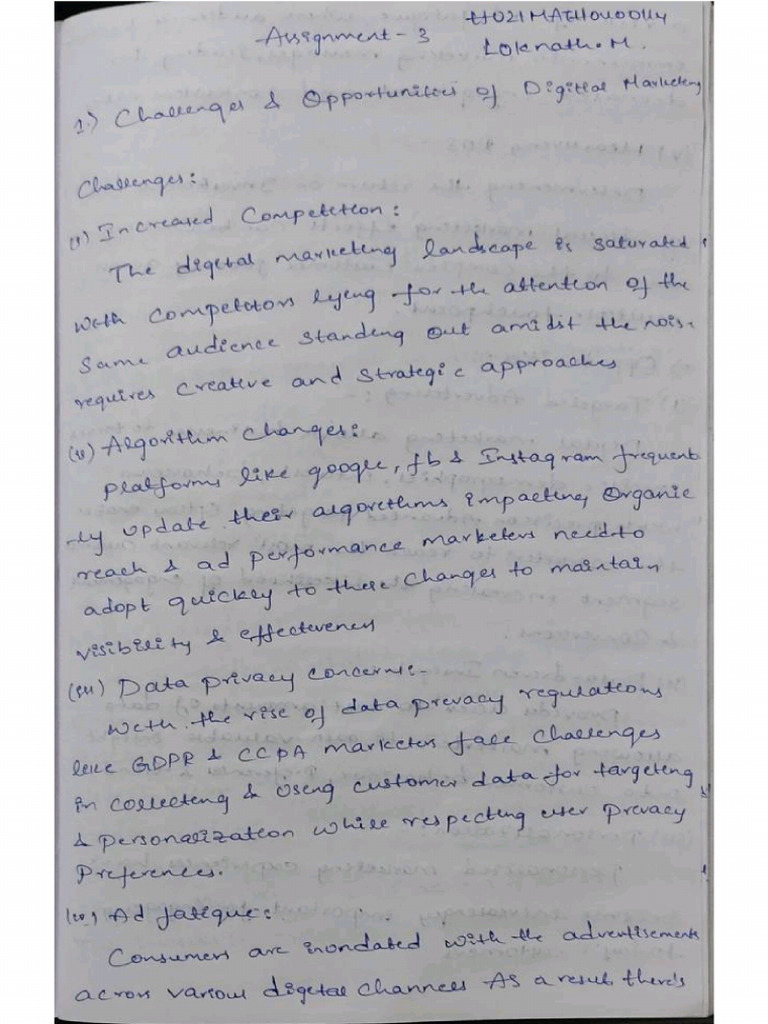 Assignment - 3
Loknath.M.
1.) Challenges & Opportunities of Digital Marketing
Challenges:
(i) Increased Competition:
The digital marketing landscape is saturated
with competitors lying for the attention of the
same audience standing out amidst the nois
requires creative and strategic approaches
(ii) Algorithm changes:
platforms like google, fb & Instagram frequent
-ly update their algorithms impacting organic
reach & ad performance marketers need to
adopt quickly to these changes to maintain
visibility & effectiveness
(iii) Data privacy concerns:-
with the rise of data privacy regulations
like GDPR & CCPA marketers face challenges
in collecting & using customer data for targeting
& personalization while respecting user privacy
Preferences.
(iv) Ad fatigue:
Consumers are inondated with the advertisements
across various digital channels As a result there's